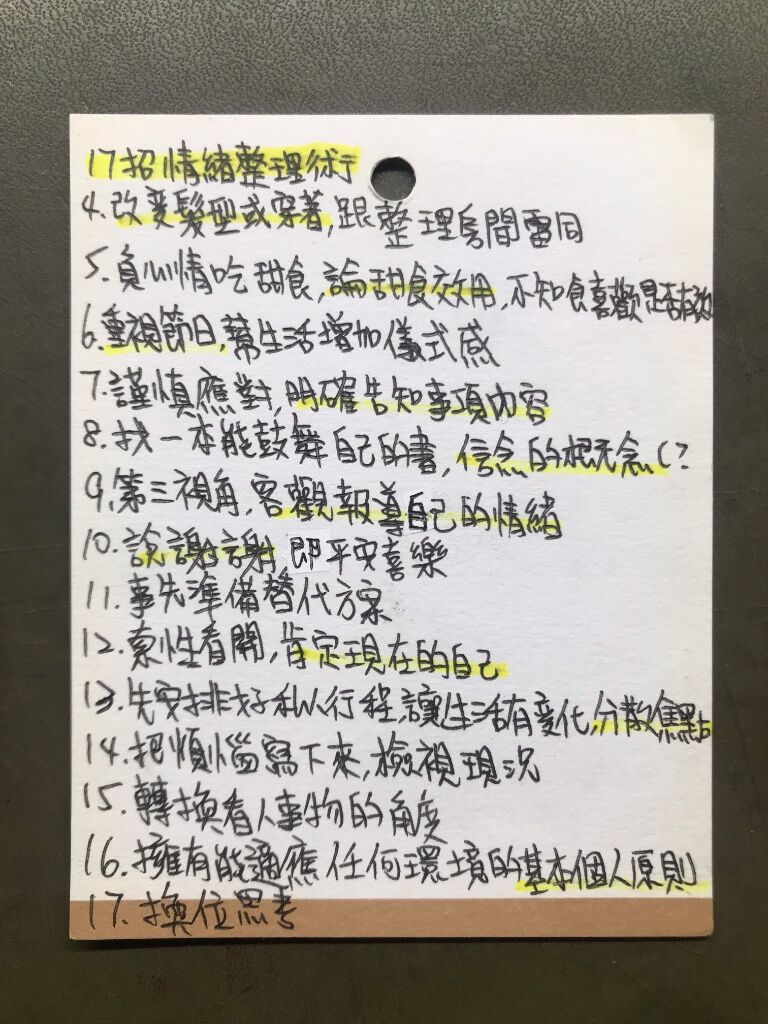 17招情緒整理術
4.改變髮型或穿著,跟整理房間雷同
5.負心情吃甜食,論甜食效用,不知食喜歡是否有效
6.重視節日,幫生活增加儀式感
7.謹慎應對,明確告知事項內容
8.找一本能鼓舞自己的書,信念的概念(?
9.第三視角,客觀報導自己的情緒
10.說謝謝 即平安喜樂
11.事先準備替代方案
12.索性看開,肯定現在的自己
13.先安排好私人行程,讓生活有變化,分散焦點
14.把煩惱寫下來,檢視現況
15.轉換看人事物的角度
16.擁有能適應任何環境的基本個人原則
17.換位思考